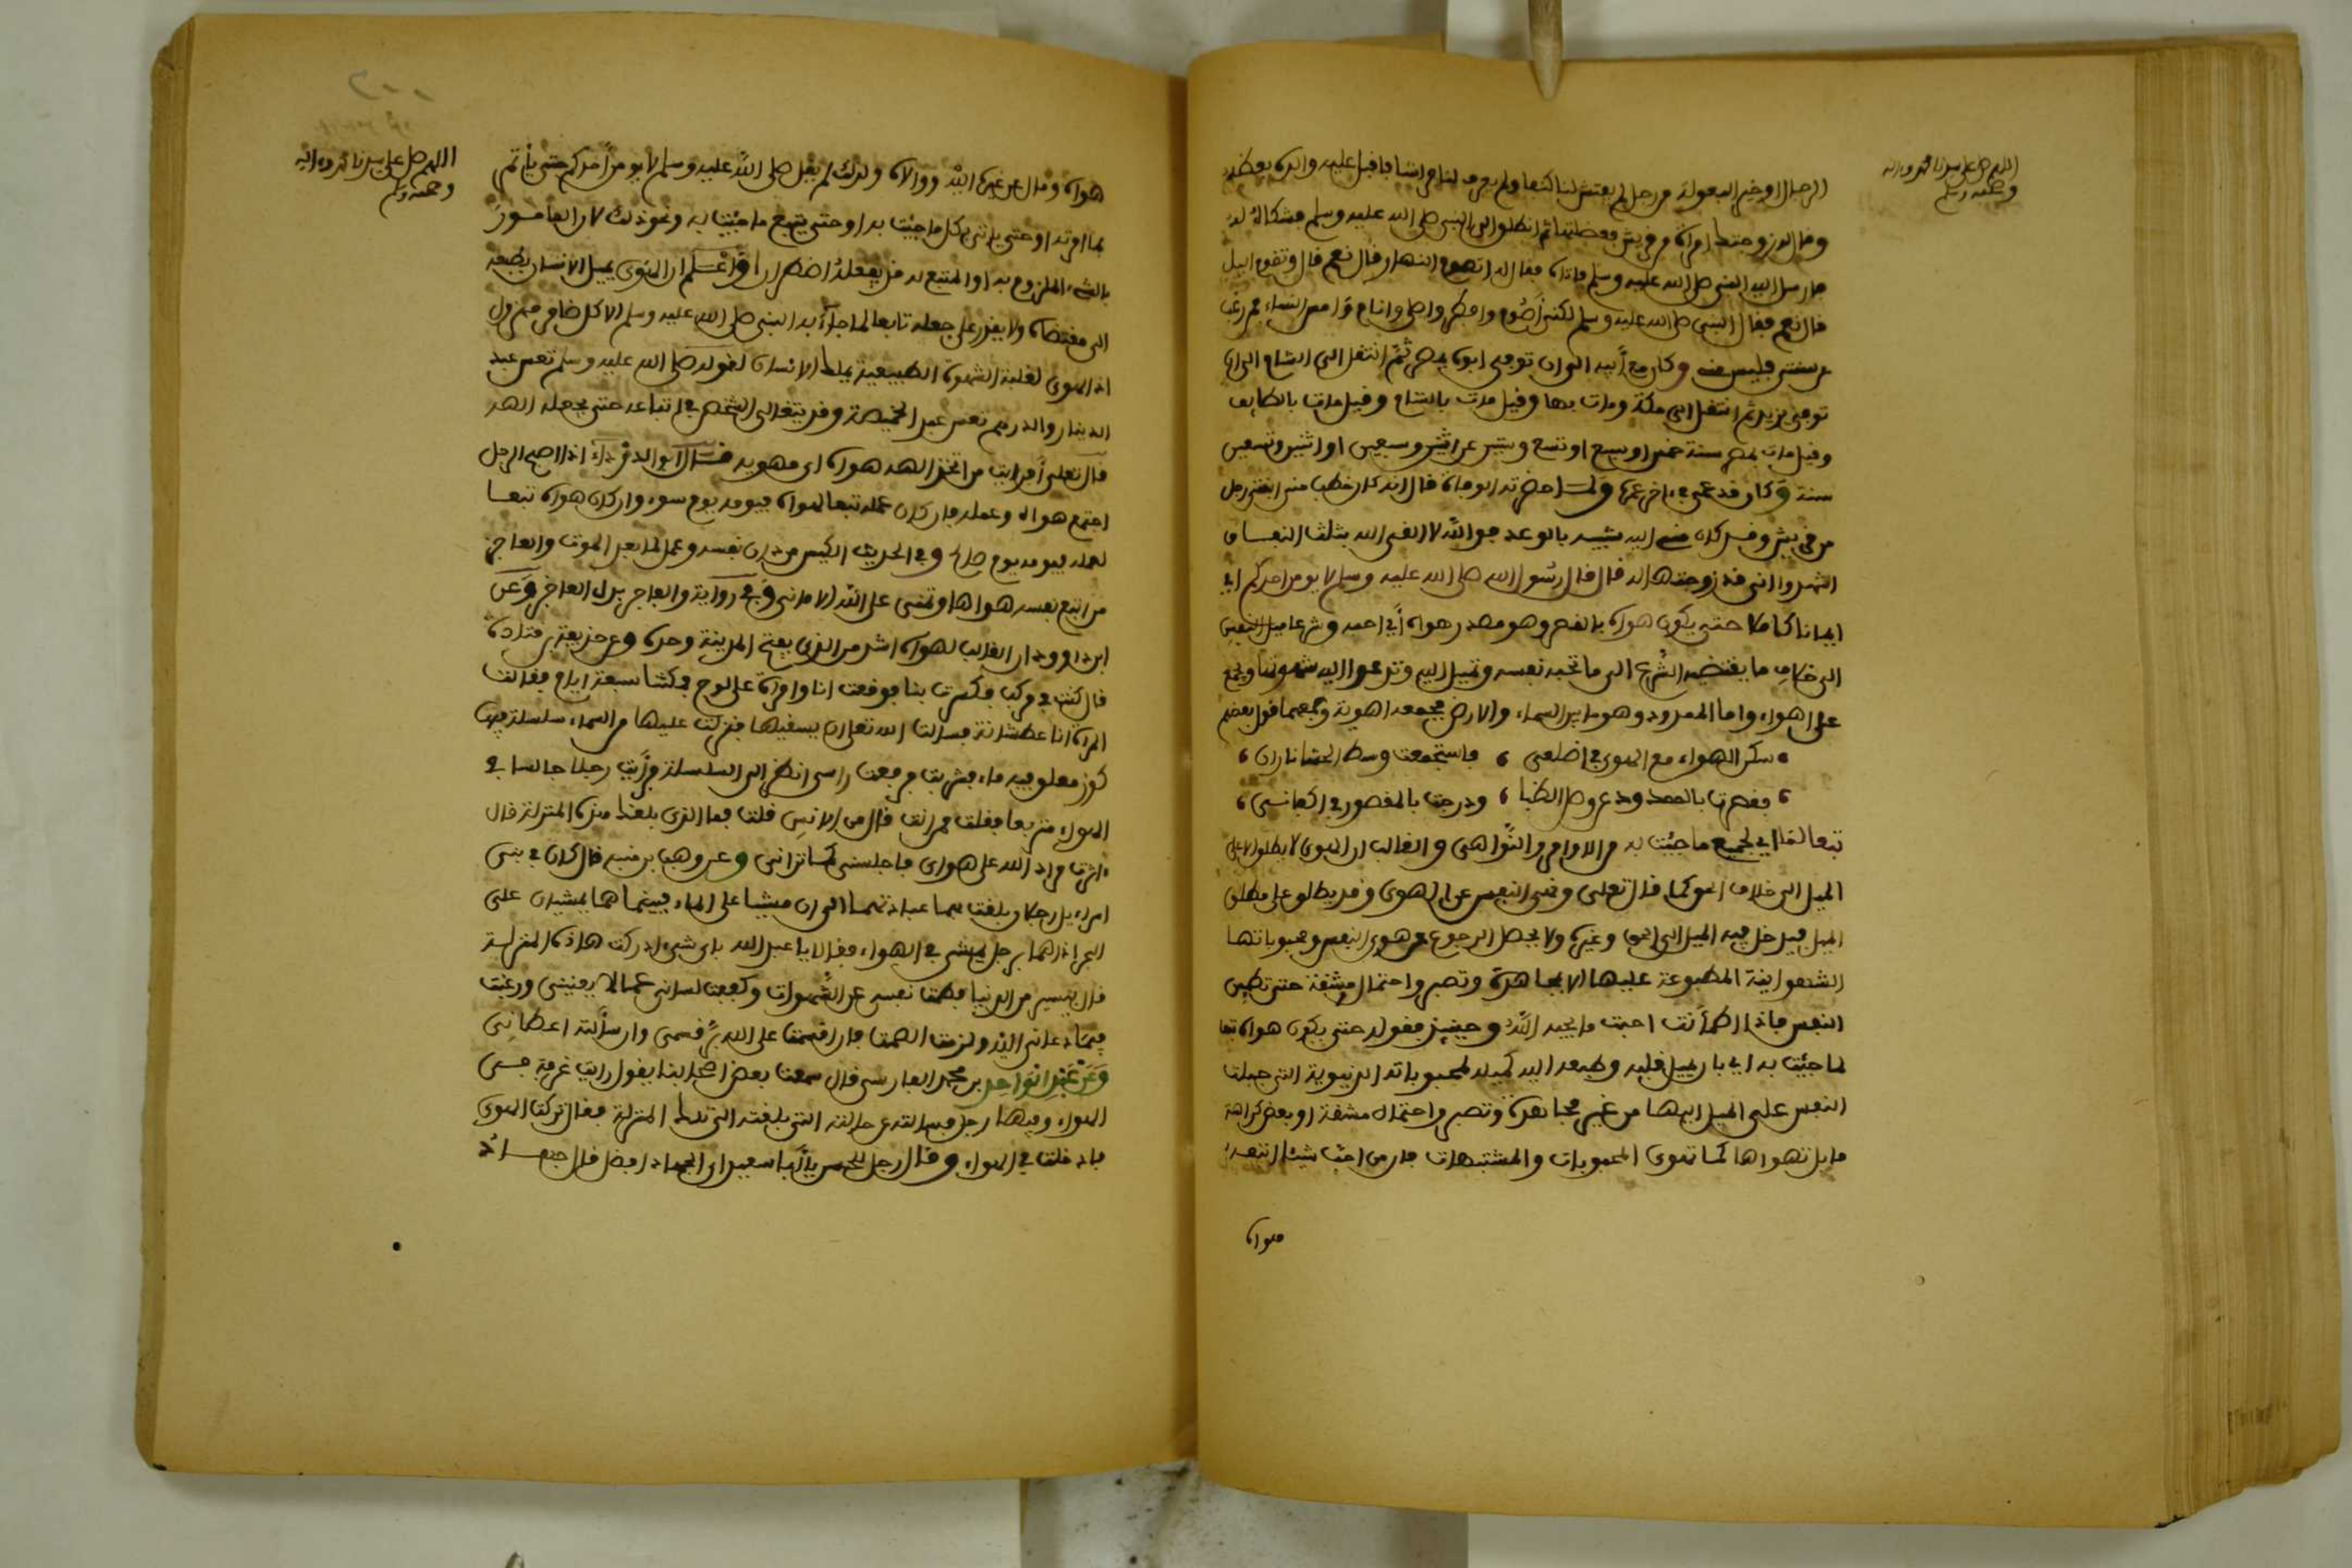 اللهم صل على سيدنا محمد وءاله
وصحبه وسلم
الرجال او خير البعولة من رجل لم يفتش لنا كنفا ولم يعرف لنا فراشا فاقبل علي والده يعظه
وقال له زوجتك امراة من قريش فعضلتها ثم انطلق الى النبي صلى الله عليه وسلم فشكاه له
فارسل اليه النبي صلى الله عليه وسلم فاتاه فقال له اتصوم النهار قال نعم قال وتقوم اليل
قال نعم فقال النبي صلى الله عليه وسلم لكني اصوم وافطر واصلي وانام وامس النساء فمن رغب
عن سنتي فليس مني وكان مع أبيه الى ان توفي ابوه بمصر ثم انتقل الى الشام الى ان
توفي يزيد ثم انتقل الى مكة ومات بها وقيل مات بالشام وقيل مات بالطايف
وقيل مات بمصر سنة خمس او سبع او تسع وستين عن اثنين وسبعين او اثنين وتسعين
سنة وكان قد عمي في ءاخر عمره ولما حضرته الوفاة قال انه كان خطب مني ابنتي رجل
من قريش وقد كان مني اليه شبيه بالوعد فوالله لا القى الله بثلث النفاق
اشهدوا اني قد زوجتها له قال قال رسول الله صلى الله عليه وسلم لا يومن احدكم اي
ايمانا كاملا حتى يكون هواه بالقصر وهو مصدر هواه أي احبه وشرعا ميل النفس
الى خلاف ما يقتضيه الشرع الى ما تحبه نفسه وتميل اليه وتدعوا اليه شهوتها ويجمع
على اهواء واما الممدود وهو ما بين السماء والارض فجمعه اهوية وجمعهما قول بعضهم
سكن الهواء مع الهوى في اضلعي فاستجمعت وسط الحشا ناران
فقصرت بالممدود عن وصل الظبا ومدجت بالمقصور في اكفاني
تبعا لما اي لجميع ما جئت به من الاوامر والنواهي والغالب ان الهوى لا يطلق الا على
الميل الى خلاف الحق كما قال تعلى ونهى النفس عن الهوى وقد يطلق على مطلق
الميل فيدخل فيه الميل الى الحق وغيره ولا يحصل الرجوع عن هوى النفس ومحبوباتها
الشهوانية المطبوعة عليها الا بمجاهدة وتصبر واحتمال مشقة حتى تطمين
النفس فاذا اطمأنت احبت ما يحبه الله وحينئذ فقوله حتى يكون هواه تبعا
لما جئت به اي بان يميل قلبه وطبعه اليه كميله لمحبوباته الدنيوية التي جبلت
النفس على الميل اليها من غير مجاهدة وتصبر واحتمال مشقة او بعض كراهة
ما بل تهواها كما تهوى المحبوبات والمشتهيات فان من احب شيئا اتبعه
هواه
اللهم صل على سيدنا محمد وءاله
وصحبه وسلم
هواه ومال عن غيره اليه ووالاه ولذلك لم يقل صلى الله عليه وسلم لا يومن أحدكم حتى يأتمر
بما امرته او حتى ياتي بكل ما جئت به او حتى يتبع ما جئت به ونحو ذلك لان المامور
بالشيء الملزوم به او المتبع له قد يفعله اضطرارا واعلم ان الهوى يميل الانسان بطبعه
الى مقتضاه ولا يقدر على جعله تابعا لما جاء به النبي صلى الله عليه وسلم الا كل ضامر مهزول
اذ الهوى لغلبة الشهوة الطبيعية يملك الانسان لقوله صلى الله عليه وسلم تعس عبد
الدينار والدرهم تعس عبد الخميصة وقد يتغالى الشخص في اتباعه حتى يجعله الهه
قال تعلى أفرايت من اتخذ الهه هواه اي مهويه قال ابو الدرداء اذا اصبح الرجل
اجتمع هواه وعمله فان كان عمله تبعا لهواه فيومه يوم سوء وان كان هواه تبعا
لعمله فيومه يوم صالح وفي الحديث الكيس من دان نفسه وعمل لما بعد الموت والعاجز
من اتبع نفسه هواها وتمنى على الله الاماني وفي رواية والفاجر بدل العاجز وعن
ابن داوود ان الغالب لهواه اشد من الذي يفتح المدينة وحده وعن حذيفة بن قتادة
قال كنت في مركب فكسرت بنا فوقعت انا وامراة على لوح فمكثنا سبعة ايام فقالت
المراة انا عطشانة فسالت الله تعلى ان يسقيها فنزلت عليها من السماء سلسلة فيها
كوز معلق فيه ماء فشربت فرفعت راسي انظر الى السلسلة فرأيت رجلا جالسا في
الهواء متربعا فقلت ممن انت قال من الانس قلت فما الذي بلغك هذه المنزلة قال
ءاثرت مراد الله على هواى فاجلسني كما تراني وعن وهب بن منبه قال كان في بني
اسراءيل رجلان بلغت بهما عبادتهما الى ان مشيا على الماء فبينما هما يمشيان على
البحر اذا هما برجل يمشي في الهواء فقالا يا عبد الله باي شيء ادركت هاذه المنزلة
قال بيسير من الدنيا فطمت نفسي عن الشهوات وكففت لساني عما لا يعنيني ورغبت
فيما دعاني اليه ولزمت الصمت فان اقسمت على الله برّ قسمي وان سألته اعطاني
وعن عبد الواحد بن محمد الفارسي قال سمعت بعض اصحابنا يقول رايت غرفة في
الهواء وفيها رجل فسالته عن حالته التي بلغته الى تلك المنزلة فقال تركت الهوى
فادخلت في الهواء وقال رجل للحسن يا أبا سعيد اي الجهاد افضل قال جهادك